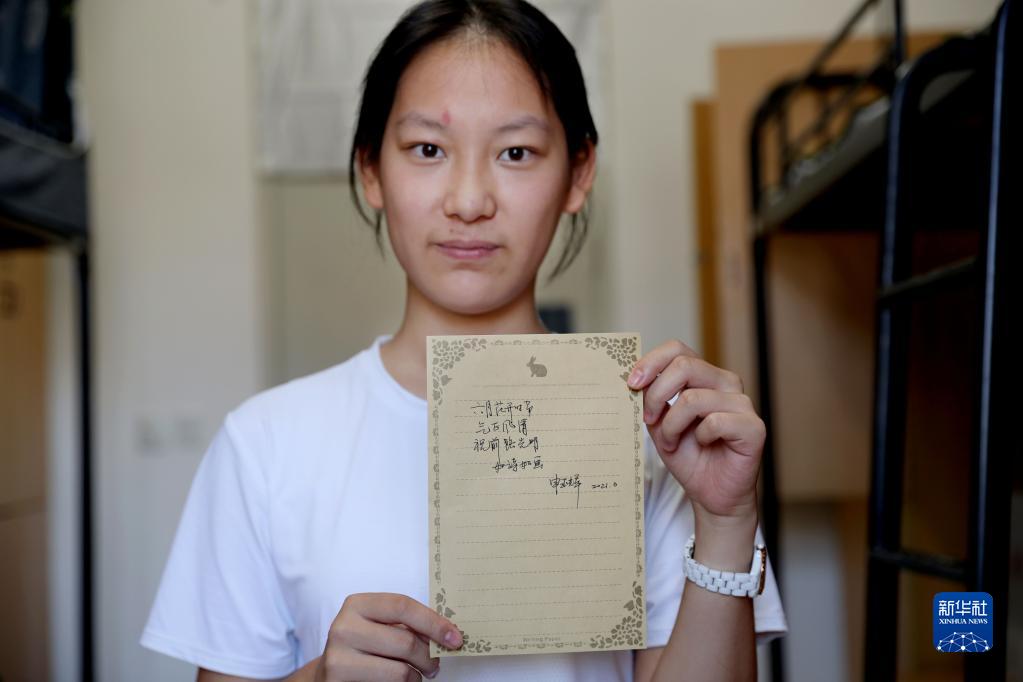 六月花开时节
乞巧
祝前路光明
如诗如画
2021.6
Writing Paper
新华社
XINHUA NEWS